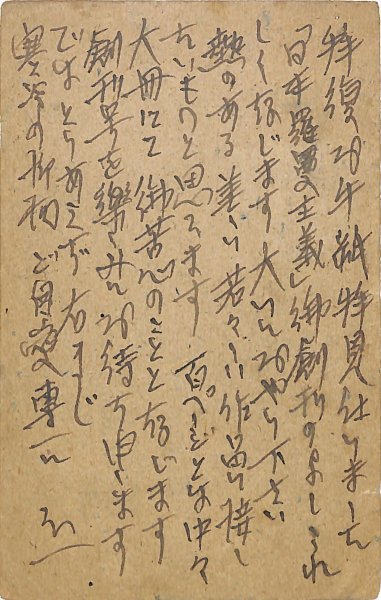 拝復 お手紙拝見仕りました
「日本羅曼主義」御創刊のよしうれ
しく存じます 大いにおやり下さい
熱のある美しい若々しい作品に接し
たいものと思ひます 百ページとは中々
大冊にて 御苦心のことと存じます
創刊号を楽しみにお待ち申します
ではとりあえず 右まで
寒冷の折柄 ご自愛専一に